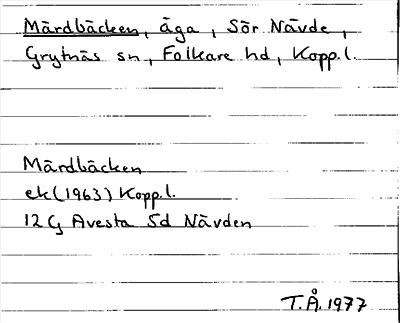 Mårdbäcken, äga, Sör Nävde,
Grytnäs sn, Folkare hd, Kopp.l.
Mårdbäcken
ek (1963) Kopp.l.
12 G Avesta 5d Nävden
T.Å. 1977